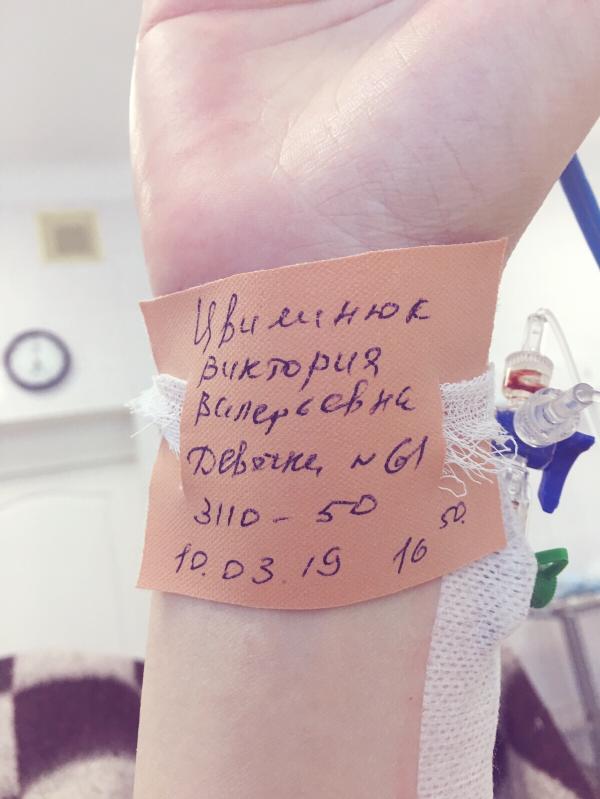 Цвилинюк
Виктория
Валерьевна
Девочка №61
3110 - 50
10.03.19 16 50.